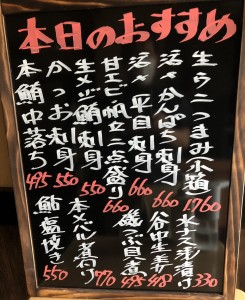 本日のおすすめ
生うにつまみ小箱 1760
活〆かんぱち刺身 660
活〆平目刺身 660
甘エビ帆立二点盛り 660
生メジ鮪刺身 550
かつお刺身 550
本鮪中落ち 495
水ナス浅漬け 330
谷中生姜 418
磯つぶ貝煮 495
本メバル煮付 770
鮎塩焼き 550